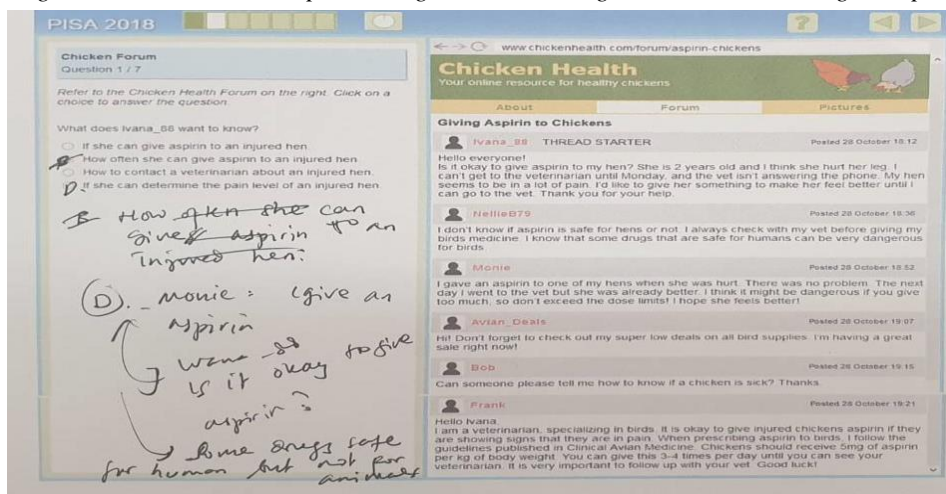 PISA 2018
?
Chicken Forum
Question 1 / 7
Refer to the Chicken Health Forum on the right. Click on a
choice to answer the question.
What does Ivana_88 want to know?
If she can give aspirin to an injured hen.
How often she can give aspirin to an injured hen.
How to contact a veterinarian about an injured hen.
D. If she can determine the pain level of an injured hen.
B How often she can
give aspirin to an
Injured hen.
(D). Monie : (give an
aspirin
is it okay to give
aspirin?
Some drugs safe
for human but not for
animals
www.chickenhealth.com/forum/aspirin-chickens
Chicken Health
Your online resource for healthy chickens
About Forum Pictures
Giving Aspirin to Chickens
Ivana_88 THREAD STARTER Posted 28 October 18:12
Hello everyone!
Is it okay to give aspirin to my hen? She is 2 years old and I think she hurt her leg. I
can't get to the veterinarian until Monday, and the vet isn't answering the phone. My hen
seems to be in a lot of pain. I'd like to give her something to make her feel better until I
can go to the vet. Thank you for your help.
NellieB79 Posted 28 October 18:36
I don't know if aspirin is safe for hens or not. I always check with my vet before giving my
birds medicine. I know that some drugs that are safe for humans can be very dangerous
for birds.
Monie Posted 28 October 18:52
I gave an aspirin to one of my hens when she was hurt. There was no problem. The next
day I went to the vet but she was already better. I think it might be dangerous if you give
too much, so don't exceed the dose limits! I hope she feels better!
Avian_Deals Posted 28 October 19:07
Hi! Don't forget to check out my super low deals on all bird supplies. I'm having a great
sale right now!
Bob Posted 28 October 19:15
Can someone please tell me how to know if a chicken is sick? Thanks.
Frank Posted 28 October 19:21
Hello Ivana,
I am a veterinarian, specializing in birds. It is okay to give injured chickens aspirin if they
are showing signs that they are in pain. When prescribing aspirin to birds, I follow the
guidelines published in Clinical Avian Medicine. Chickens should receive 5mg of aspirin
per kg of body weight. You can give this 3-4 times per day until you can see your
veterinarian. It is very important to follow up with your vet. Good luck!